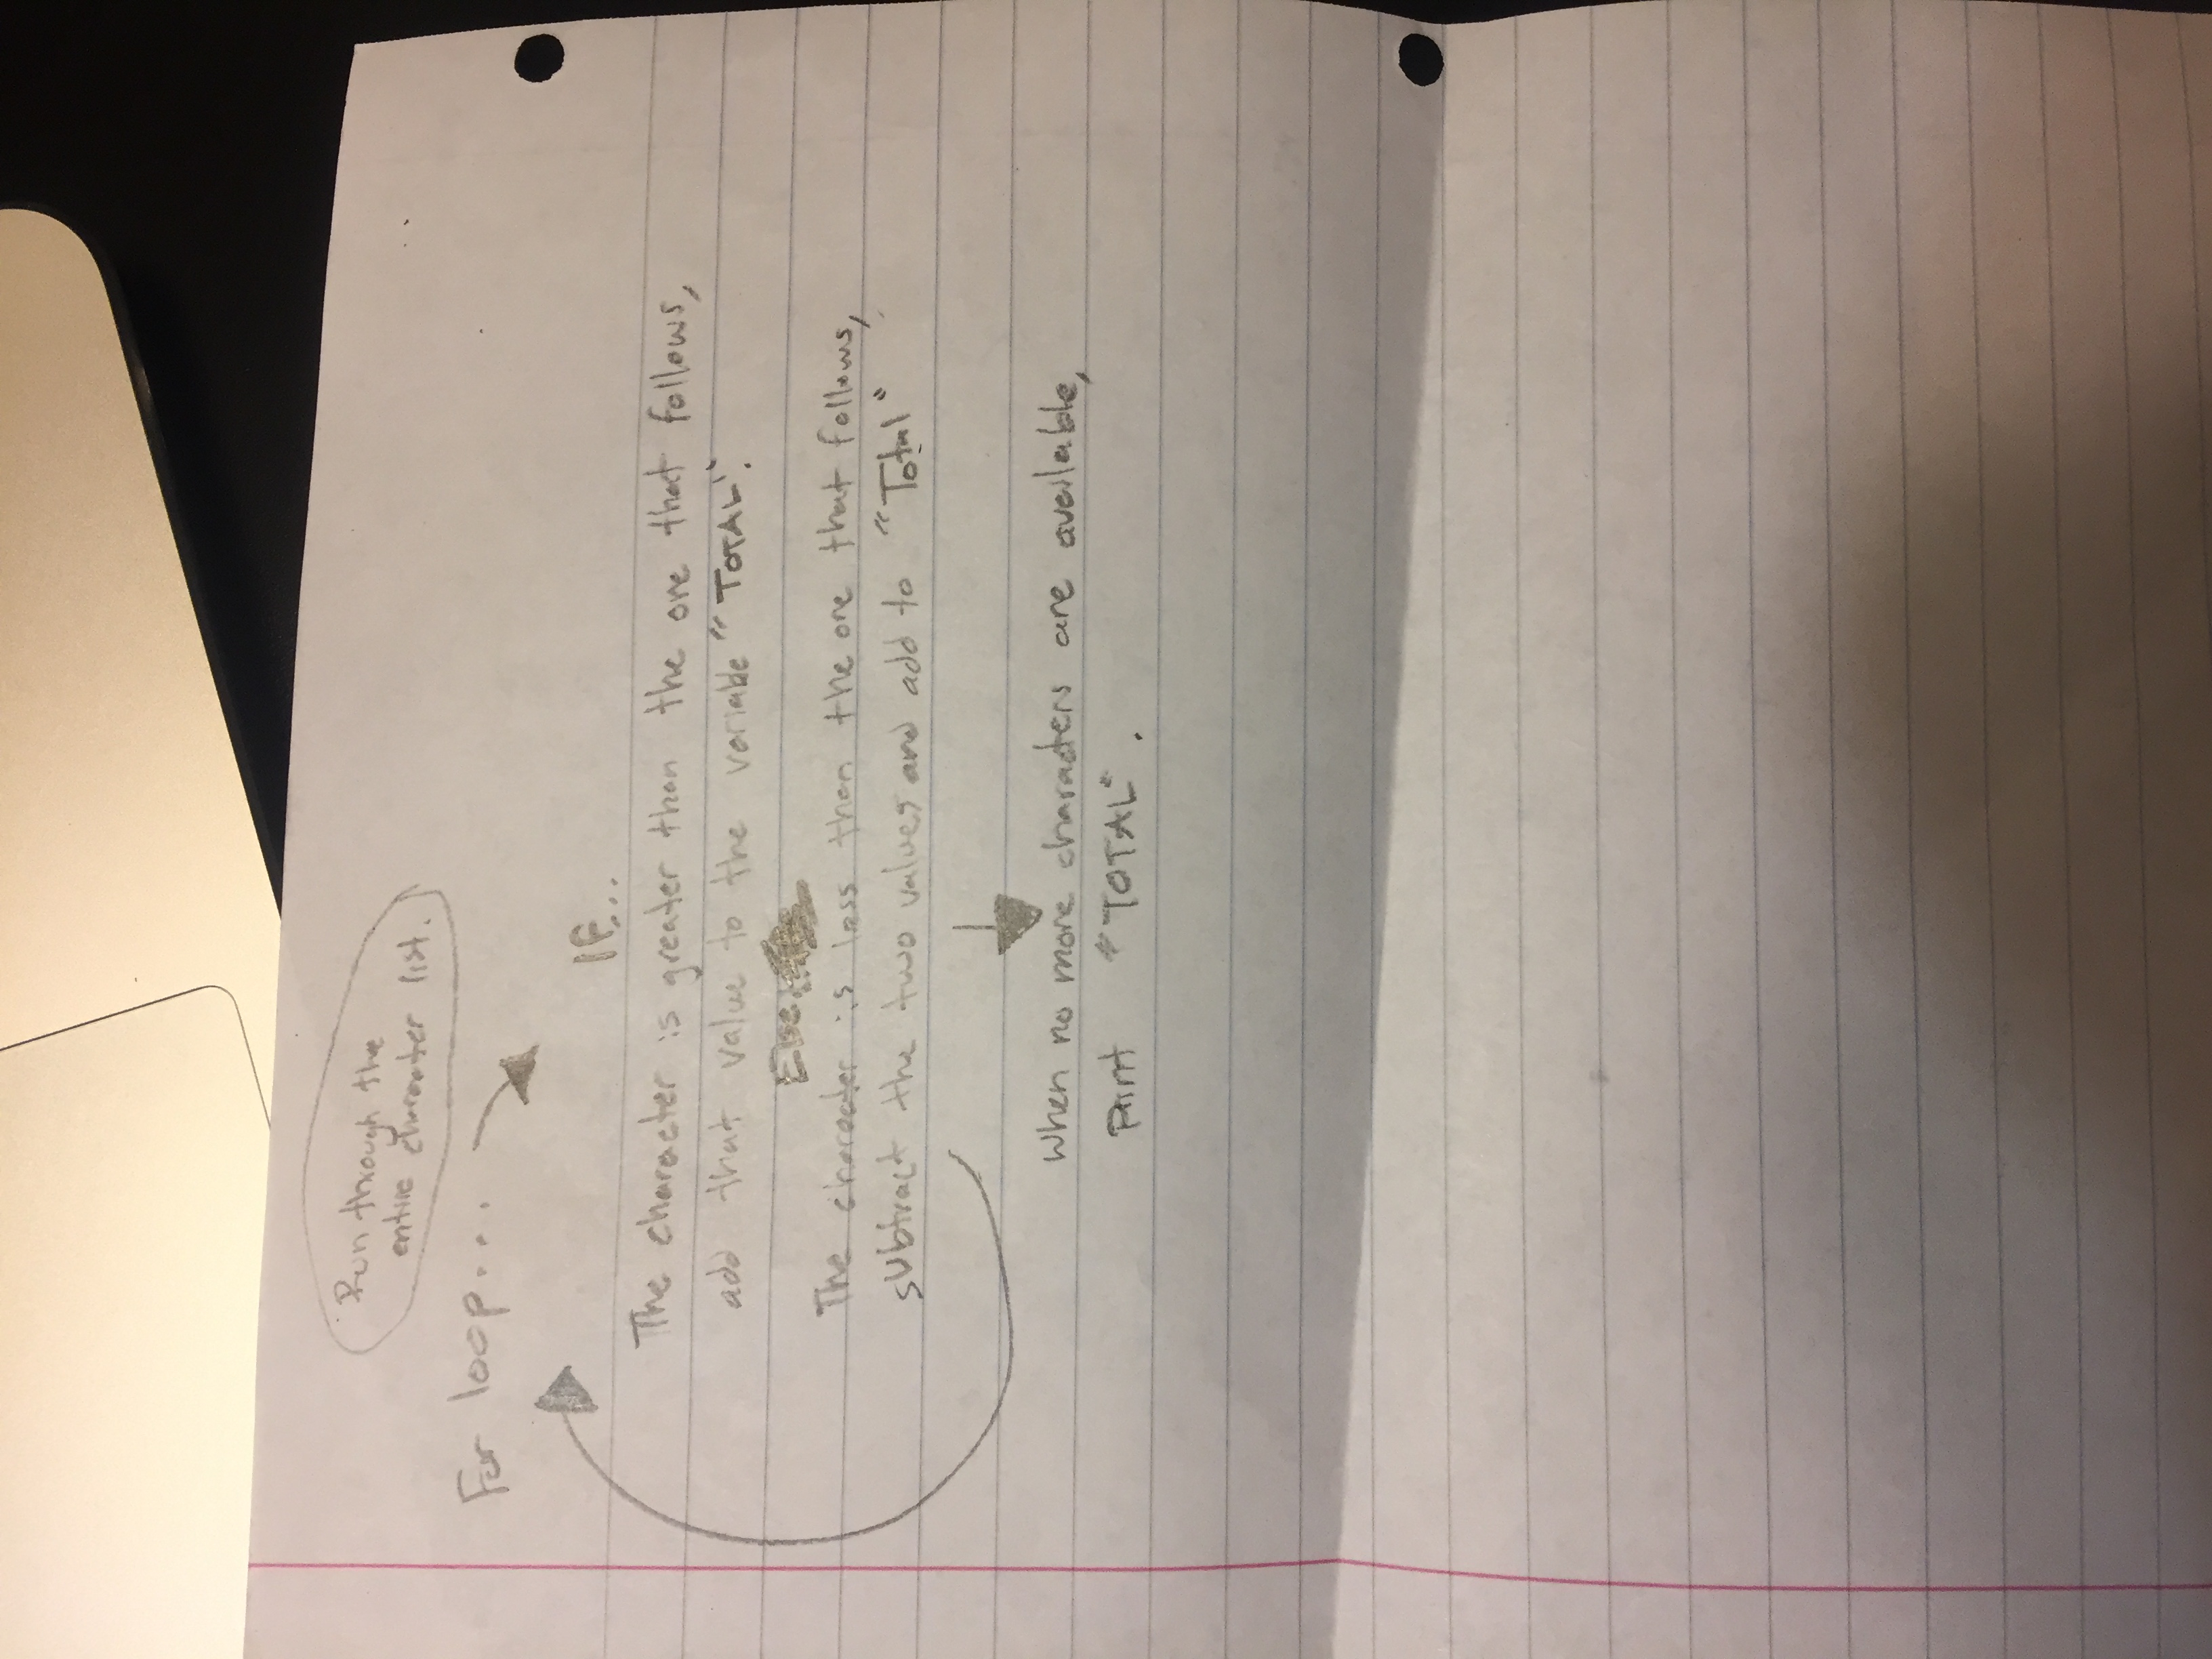 Run through the
entire character list.
For loop...
IF...
The character is greater than the one that follows,
add that value to the variable "TOTAL".
Else...
The character is less than the one that follows,
subtract the two values and add to "Total"
When no more characters are available,
Print "TOTAL".